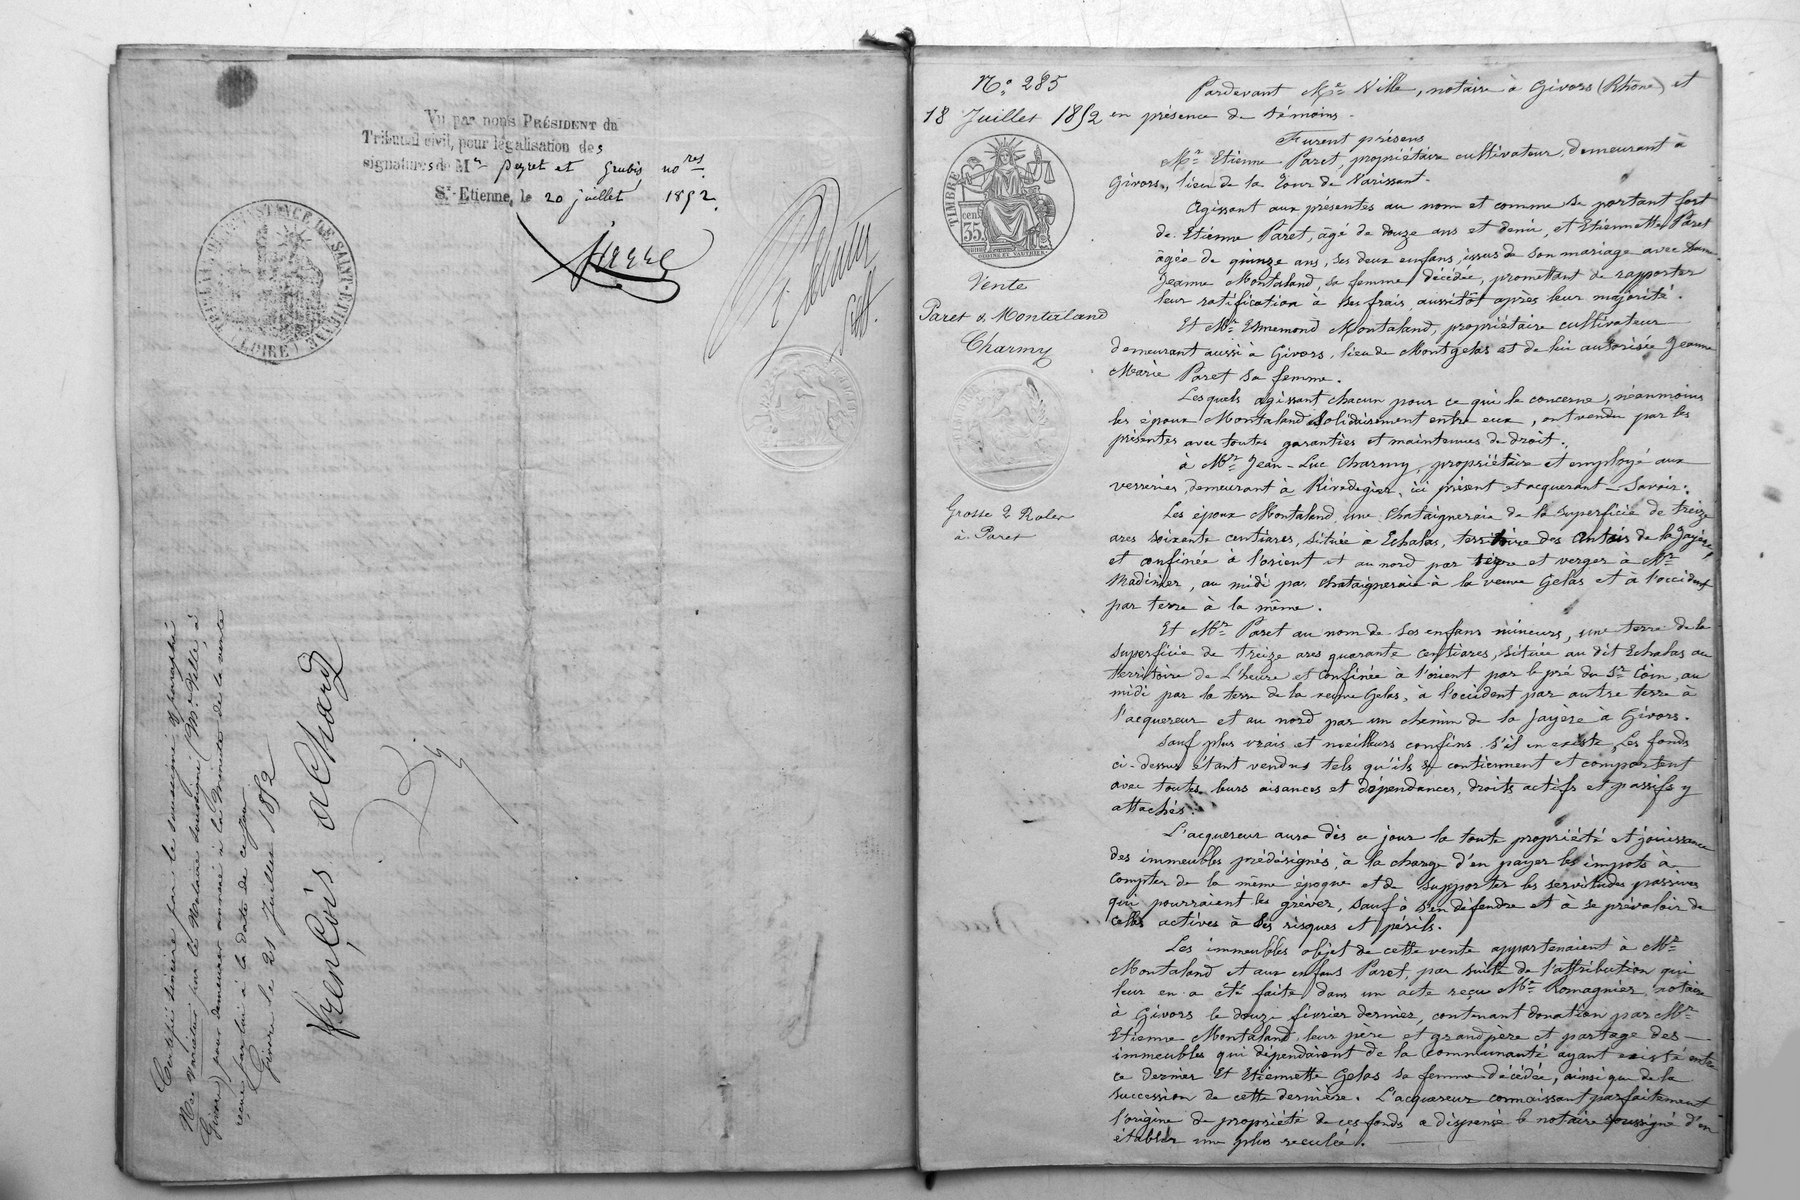 Vu par nous PRÉSIDENT du
Tribunal civil, pour légalisation des
signatures de Mrs Peyret et Grubis nores
St-Etienne, le 20 juillet 1852.
TRIBUNAL DE 1RE INSTANCE DE SAINT-ETIENNE
(LOIRE)
Certifié sincère par le soussigné
par le Notaire soussigné (Me Ville, à
Givors) pour demeurer annexé à la Minute de la vente
reçue par lui à la date de ce jour
Givors le 21 Juillet 1852
No 285
18 Juillet 1852
TIMBRE
35 cent
Vente
Paret & Montaland
à
Charmy
Grosse 2 Roles
à Paret
Pardevant Me Ville, notaire à Givors (Rhône) et
en présence de témoins.
Furent présens
Mr Etienne Paret, propriétaire cultivateur, demeurant à
Givors, lieu de la Tour de Varissant.
Agissant aux présentes au nom et comme se portant fort
de Etienne Paret, âgé de douze ans et demi, et Etiennette Paret
agée de quinze ans, ses deux enfans, issus de son mariage avec Dame
Jeanne Montaland, sa femme décédée, promettant de rapporter
leur ratification à ses frais, aussitôt après leur majorité.
Et Mr Ennemond Montaland, propriétaire cultivateur
demeurant aussi à Givors, lieu de Montgelas et de lui autorisée Jeanne
Marie Paret sa femme.
Lesquels agissant chacun pour ce qui le concerne, néanmoins
les époux Montaland solidairement entre eux, ont vendu par les
présentes avec toutes garanties et maintenues de droit.
à Mr Jean-Luc Charmy, propriétaire et employé aux
verreries, demeurant à Rivedegier, ici présent et acquerant - Savoir:
Les époux Montaland, une chataigneraie de la superficie de treize
ares soixante centiares, située à Echalas, territoire des de la Jayère,
et confinée à l'orient et au nord par terre et verger à Mr
Madinier, au midi par chataigneraie à la veuve Gelas et à l'occident
par terre à la même.
Et Mr Paret au nom de ses enfans mineurs, une terre de la
superficie de treize ares quarante centiares, située au dit Echalas au
territoire de L'heure et confinée à l'orient par le pré du Sr Coin, au
midi par la terre de la veuve Gelas, à l'occident par autre terre à
l'acquereur et au nord par un chemin de la Jayère à Givors.
Sauf plus vrais et meilleurs confins s'il en existe, Les fonds
ci-dessus étant vendus tels qu'ils se contiennent et comportent
avec toutes leurs aisances et dépendances, droits actifs et passifs y
attachés.
L'acquereur aura dès ce jour la toute propriété et jouissance
des immeubles prédésignés, à la charge d'en payer les impots à
compter de la même époque et de supporter les servitudes passives
qui pourraient les gréver, sauf à s'en défendre et à se prévaloir de
celles actives à ses risques et périls.
Les immeubles objet de cette vente appartenaient à Mr
Montaland et aux enfans Paret, par suite de l'attribution qui
leur en a été faite dans un acte reçu Me Romagnier, notaire
à Givors le douze février dernier, contenant donation par Mr
Etienne Montaland, leur père et grandpère et partage des
immeubles qui dépendaient de la communauté ayant existé entre
ce dernier Et Etiennette Gelas sa femme décédée, ainsi que de la
succession de cette dernière. L'acquereur connaissant parfaitement
l'origine de propriété de ces fonds a dispensé le notaire soussigné d'en
établir une plus reculée.